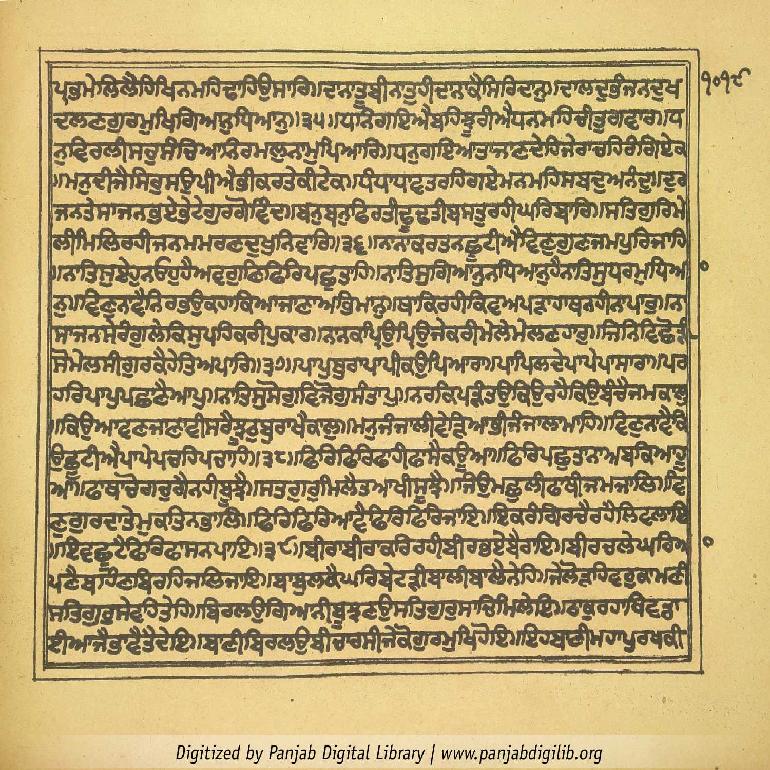 ੧੦੧੯
ਪ੍ਰਭੁਮੇਲਿਲੈਹਿਖਿਨਮਹਿਢਾਹਿਉਸਾਰਿ॥ਦਾਨਾਤੂਬੀਨਾਤੁਹੀਦਾਨਾਕੈਸਿਰਿਦਾਨੁ॥ਦਾਲਦੁਭੰਜਨਦੁਖ
ਦਲਣਗੁਰਮੁਖਿਗਿਆਨੁਧਿਆਨੁ॥੩੫॥ਧਨਿਗਇਐਬਹਿਝੂਰੀਐਧਨਮਹਿਚੀਤੁਗਵਾਰ॥ਧ
ਨੁਵਿਰਲੀਸਚੁਸੰਚਿਆਨਿਰਮਲੁਨਾਮੁਪਿਆਰਿ॥ਧਨੁਗਇਆਤਾਜਾਣਦੇਹਿਜੇਰਾਚਹਿਰੰਗਿਏਕ
॥ਮਨੁਦੀਜੈਸਿਰੁਸਉਪੀਐਭੀਕਰਤੇਕੀਟੇਕ॥ਧੰਧਾਧਾਵਤਰਹਿਗਏਮਨਮਹਿਸਬਦੁਅਨੰਦੁ॥ਦੁਰ
ਜਨਤੇਸਾਜਨਭਏਭੇਟੇਗੁਰਗੋਵਿੰਦ॥ਬਨੁਬਨੁਫਿਰਤੀਢੂਢਤੀਬਸਤੁਰਹੀਘਰਿਬਾਰਿ॥ਸਤਿਗੁਰਿਮੇ
ਲੀਮਿਲਿਰਹੀਜਨਮਮਰਣਦੁਖੁਨਿਵਾਰਿ॥੩੬॥ਨਾਨਾਕਰਤਨਛੂਟੀਐਵਿਣੁਗੁਣਜਮਪੁਰਿਜਾਹਿ
॥ਨਾਤਿਸੁਏਹੁਨਓਹੁਹੈਅਵਗੁਣਿਫਿਰਿਪਛੁਤਾਹਿ॥ਨਾਤਿਸੁਗਿਆਨੁਨਧਿਆਨੁਹੈਨਾਤਿਸੁਧਰਮੁਧਿਆ
ਨੁ॥ਵਿਣੁਨਾਵੈਨਿਰਭਉਕਹਾਕਿਆਜਾਣਾਅਭਿਮਾਨੁ॥ਥਾਕਿਰਹੀਕਿਵਅਪੜਾਹਾਥਨਹੀਨਾਪਾਰੁ॥ਨਾ
ਸਾਜਨਸੇਰੰਗੁਲੇਕਿਸੁਪਹਿਕਰੀਪੁਕਾਰ॥ਨਾਨਕਪ੍ਰਿਉਪ੍ਰਿਉਜੇਕਰੀਮੇਲੇਮੇਲਣਹਾਰੁ॥ਜਿਨਿਵਿਛੋੜੀ
ਸੋਮੇਲਸੀਗੁਰਕੈਹੇਤਿਅਪਾਰਿ॥੩੭॥ਪਾਪੁਬੁਰਾਪਾਪੀਕਉਪਿਆਰਾ॥ਪਾਪਿਲਦੇਪਾਪੇਪਾਸਾਰਾ॥ਪਰ
ਹਰਿਪਾਪੁਪਛਾਣੈਆਪੁ॥ਨਾਤਿਸੁਸੋਗੁਵਿਜੋਗੁਸੰਤਾਪੁ॥ਨਰਕਿਪੜੰਤਉਕਿਉਰਹੈਕਿਉਬੰਚੈਜਮਕਾਲੁ
॥ਕਿਉਆਵਣਜਾਣਾਵੀਸਰੈਝੂਠੁਬੁਰਾਖੈਕਾਲੁ॥ਮਨੁਜੰਜਾਲੀਵੇੜਿਆਭੀਜੰਜਾਲਾਮਾਹਿ॥ਵਿਣੁਨਾਵੈਕਿ
ਉਛੂਟੀਐਪਾਪੇਪਚਹਿਪਚਾਹਿ॥੩੮॥ਫਿਰਿਫਿਰਿਫਾਹੀਫਾਸੈਕਊਆ॥ਫਿਰਿਪਛੁਤਾਨਾਅਬਕਿਆਹੂ
ਆ॥ਫਾਥਾਚੋਗਚੁਗੈਨਹੀਬੂਝੈ॥ਸਤਗੁਰੁਮਿਲੈਤਆਖੀਸੂਝੈ॥ਜਿਉਮਛੁਲੀਫਾਥੀਜਮਜਾਲਿ॥ਵਿ
ਣੁਗੁਰਦਾਤੇਮੁਕਤਿਨਭਾਲਿ॥ਫਿਰਿਫਿਰਿਆਵੈਫਿਰਿਫਿਰਿਜਾਇ॥ਇਕਰੰਗਿਰਚੈਰਹੈਲਿਵਲਾਇ
॥ਇਵਛੂਟੈਫਿਰਿਫਾਸਨਪਾਇ॥੩੯॥ਬੀਰਾਬੀਰਾਕਰਿਰਹੀਬੀਰਭਏਬੈਰਾਇ॥ਬੀਰਚਲੇਘਰਿਆ
ਪਣੈਬਹਿਣਬਿਰਹਿਜਲਿਜਾਇ॥ਬਾਬੁਲਕੈਘਰਿਬੇਟੜੀਬਾਲੀਬਾਲੈਨੇਹਿ॥ਜੇਲੋੜਹਿਵਰੁਕਾਮਣੀ
ਸਤਿਗੁਰੁਸੇਵਹਿਤੇਹਿ॥ਬਿਰਲਉਗਿਆਨੀਬੂਝਣਉਸਤਿਗੁਰੁਸਾਚਿਮਿਲੇਇ॥ਠਾਕੁਰਹਾਥਿਵਡਾ
ਈਆਜੈਭਾਵੈਤੈਦੇਇ॥ਬਾਣੀਬਿਰਲਉਬੀਚਾਰਸੀਜੇਕੋਗੁਰਮੁਖਿਹੋਇ॥ਇਹਬਾਣੀਮਹਾਪੁਰਖਕੀ
Digitized by Panjab Digital Library | www.panjabdigilib.org